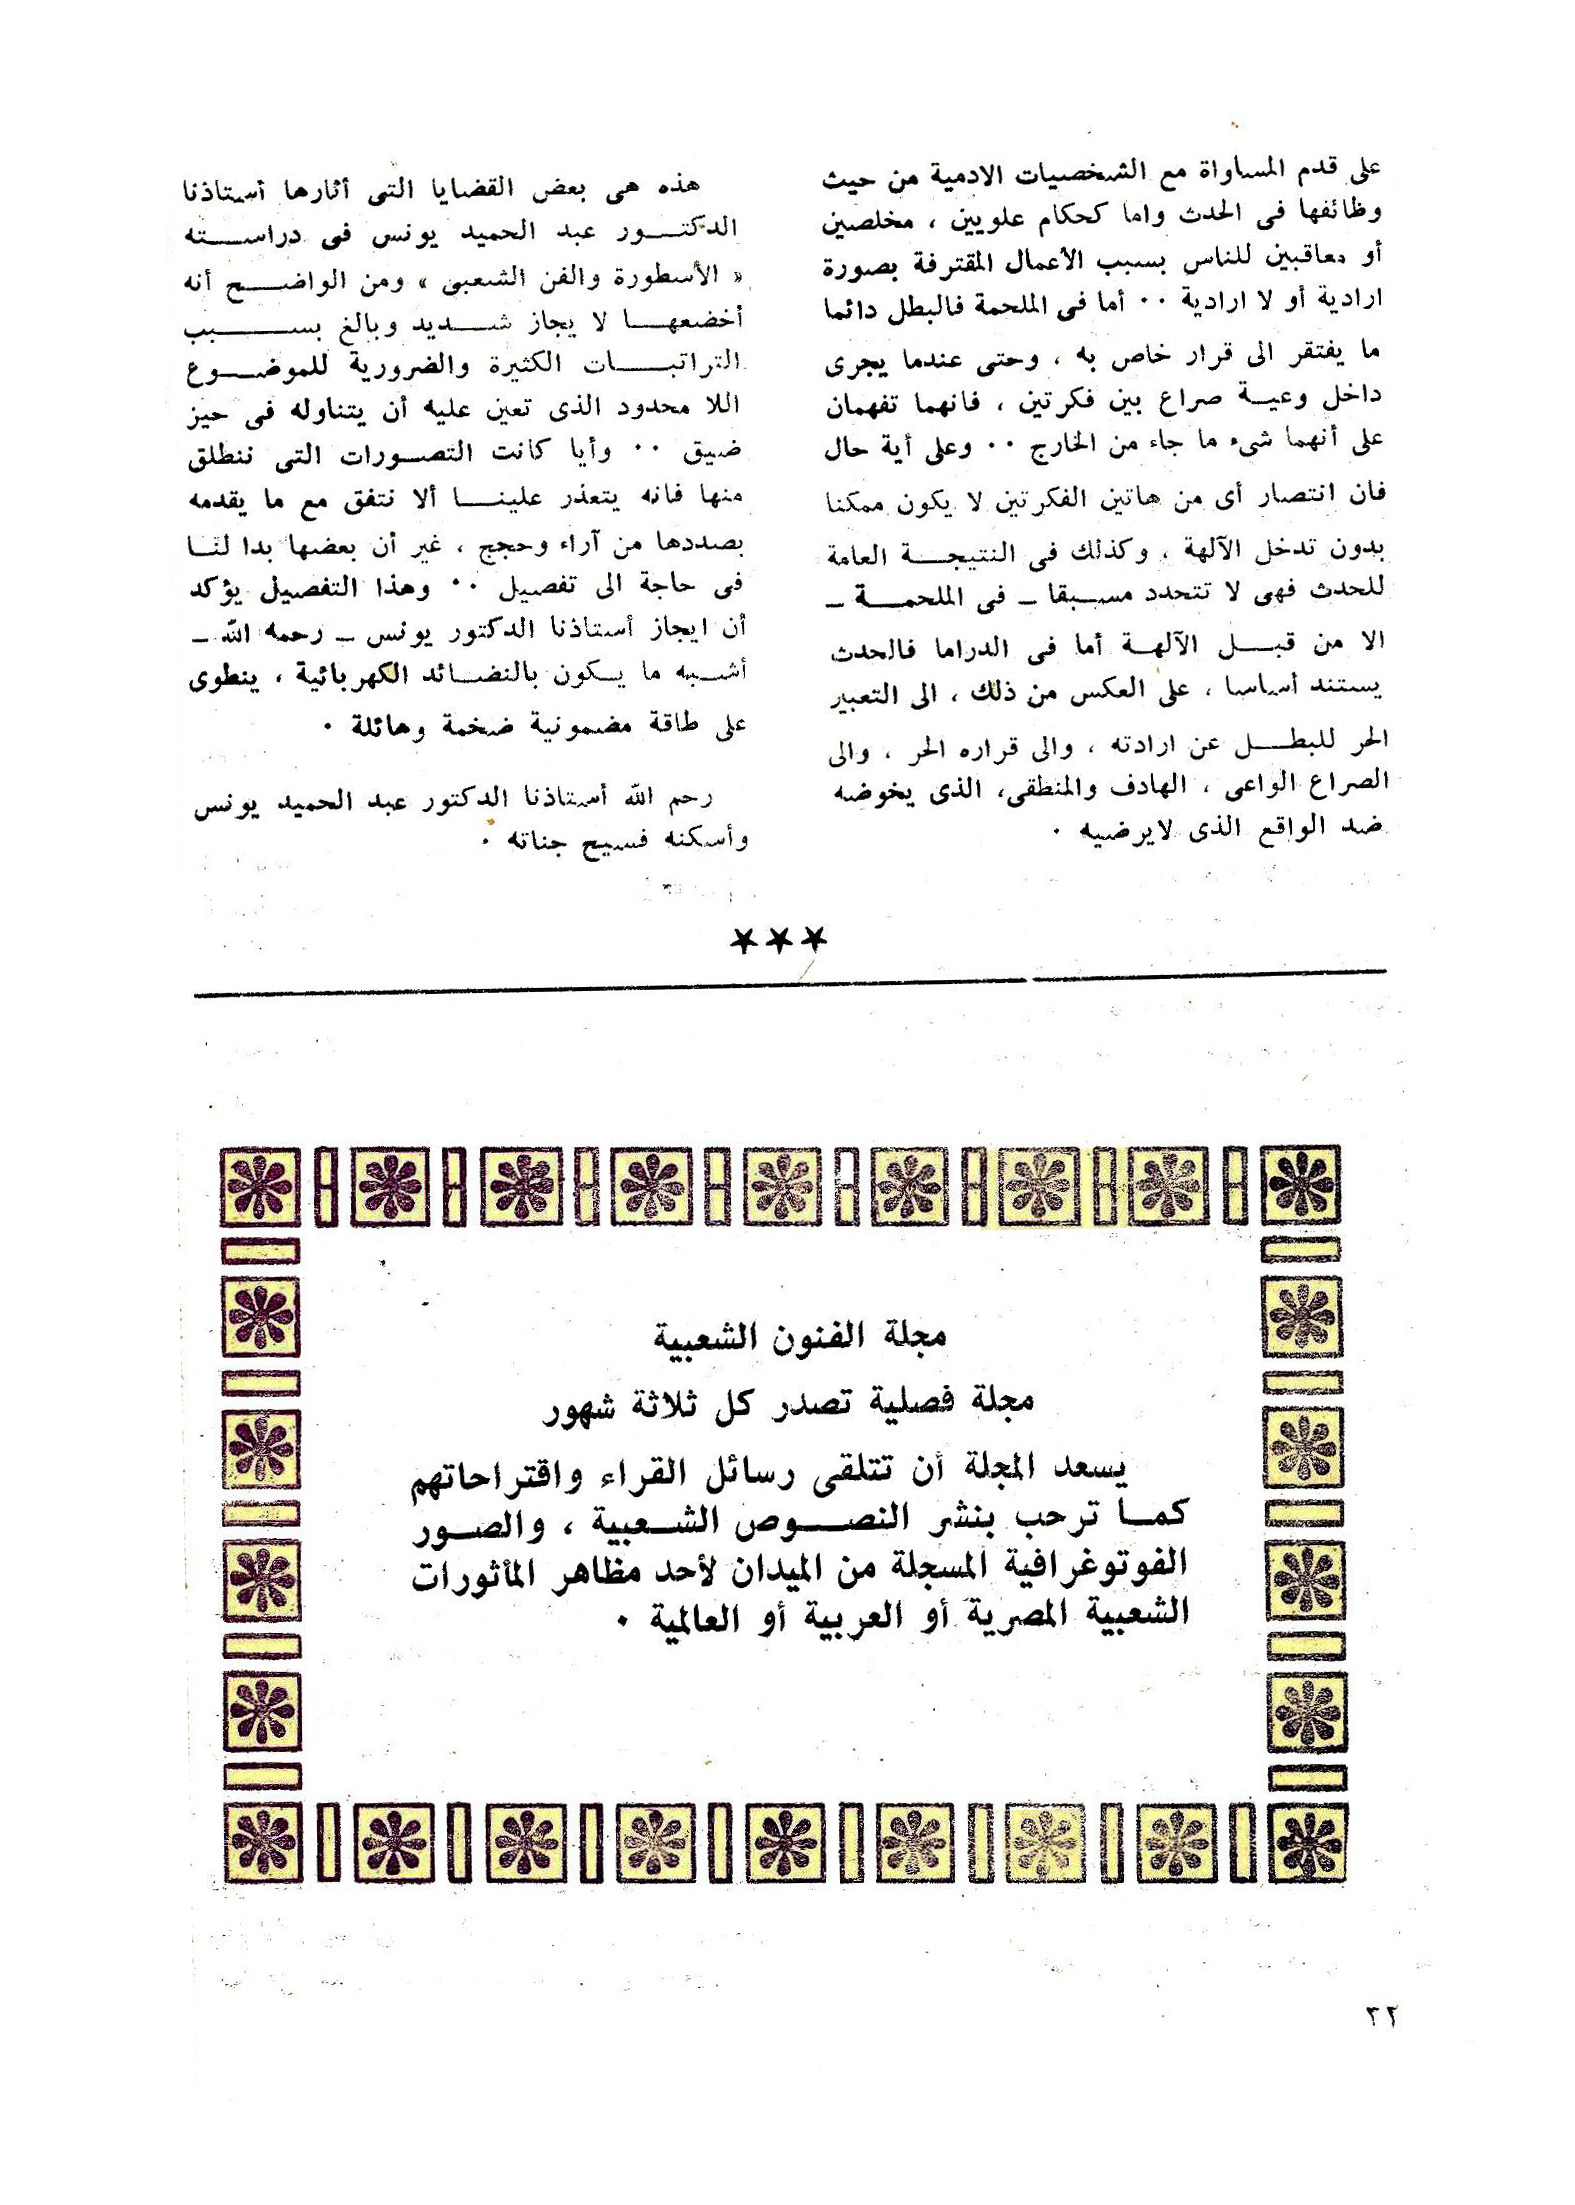 على قدم المساواة مع الشخصيات الادمية من حيث
وظائفها فى الحدث واما كحكام علويين ، مخلصين
أو معاقبين للناس بسبب الأعمال المقترفة بصورة
ارادية أو لا ارادية ٠٠ أما فى الملحمة فالبطل دائما
ما يفتقر الى قرار خاص به ، وحتى عندما يجرى
داخل وعيـة صراع بين فكرتين ، فانهما تفهمان
على أنهما شىء ما جاء من الخارج ٠٠ وعلى أية حال
فان انتصار أى من هاتين الفكرتين لا يكون ممكنا
بدون تدخل الآلهة ، وكذلك فى النتيجـة العامة
للحدث فهى لا تتحدد مسبقا – فى الملحمـة –
الا من قبـل الآلهـة أما فى الدراما فالحدث
يستند أساسا ، على العكس من ذلك ، الى التعبير
الحر للبطـل عن ارادته ، والى قراره الحر ، والى
الصراع الواعى ، الهادف والمنطقى، الذى يخوضه
ضد الواقع الذى لايرضيه ٠
هذه هى بعض القضايا التى أثارها أستاذنا
الدكتـور عبد الحميد يونس فى دراسـته
« الأسطورة والفن الشعبى » ومن الواضـح أنه
أخضعهـا لا يجاز شـديد وبالغ بسـبب
التراتبـات الكثيرة والضرورية للموضـوع
اللا محدود الذى تعين عليه أن يتناوله فى حيز
ضيق ٠٠ وأيا كانت التصـورات التى ننطلق
منها فانه يتعذر علينـا ألا نتفق مع ما يقدمه
بصددها من آراء وحجج ، غير أن بعضها بدا لنـا
فى حاجة الى تفصيل ٠٠ وهذا التفصيل يؤكد
أن ايجاز أستاذنا الدكتور يونس – رحمه الله –
أشـبه ما يـكون بالنضـائد الكهربائية ، ينطوى
على طاقة مضمونية ضخمة وهائلة ٠
رحم الله أستاذنا الدكتور عبد الحميد يونس
وأسكنه فسيح جناته ٠
★★★
مجلة الفنون الشعبية
مجلة فصلية تصدر كل ثلاثة شهور
يسعد المجلة أن تتلقى رسائل القراء واقتراحاتهم
كمـا ترحب بنشر النصـوص الشـعبية ، والصـور
الفوتوغرافية المسجلة من الميدان لأحد مظاهر المأثورات
الشعبية المصرية أو العربية أو العالمية ٠
٢٢